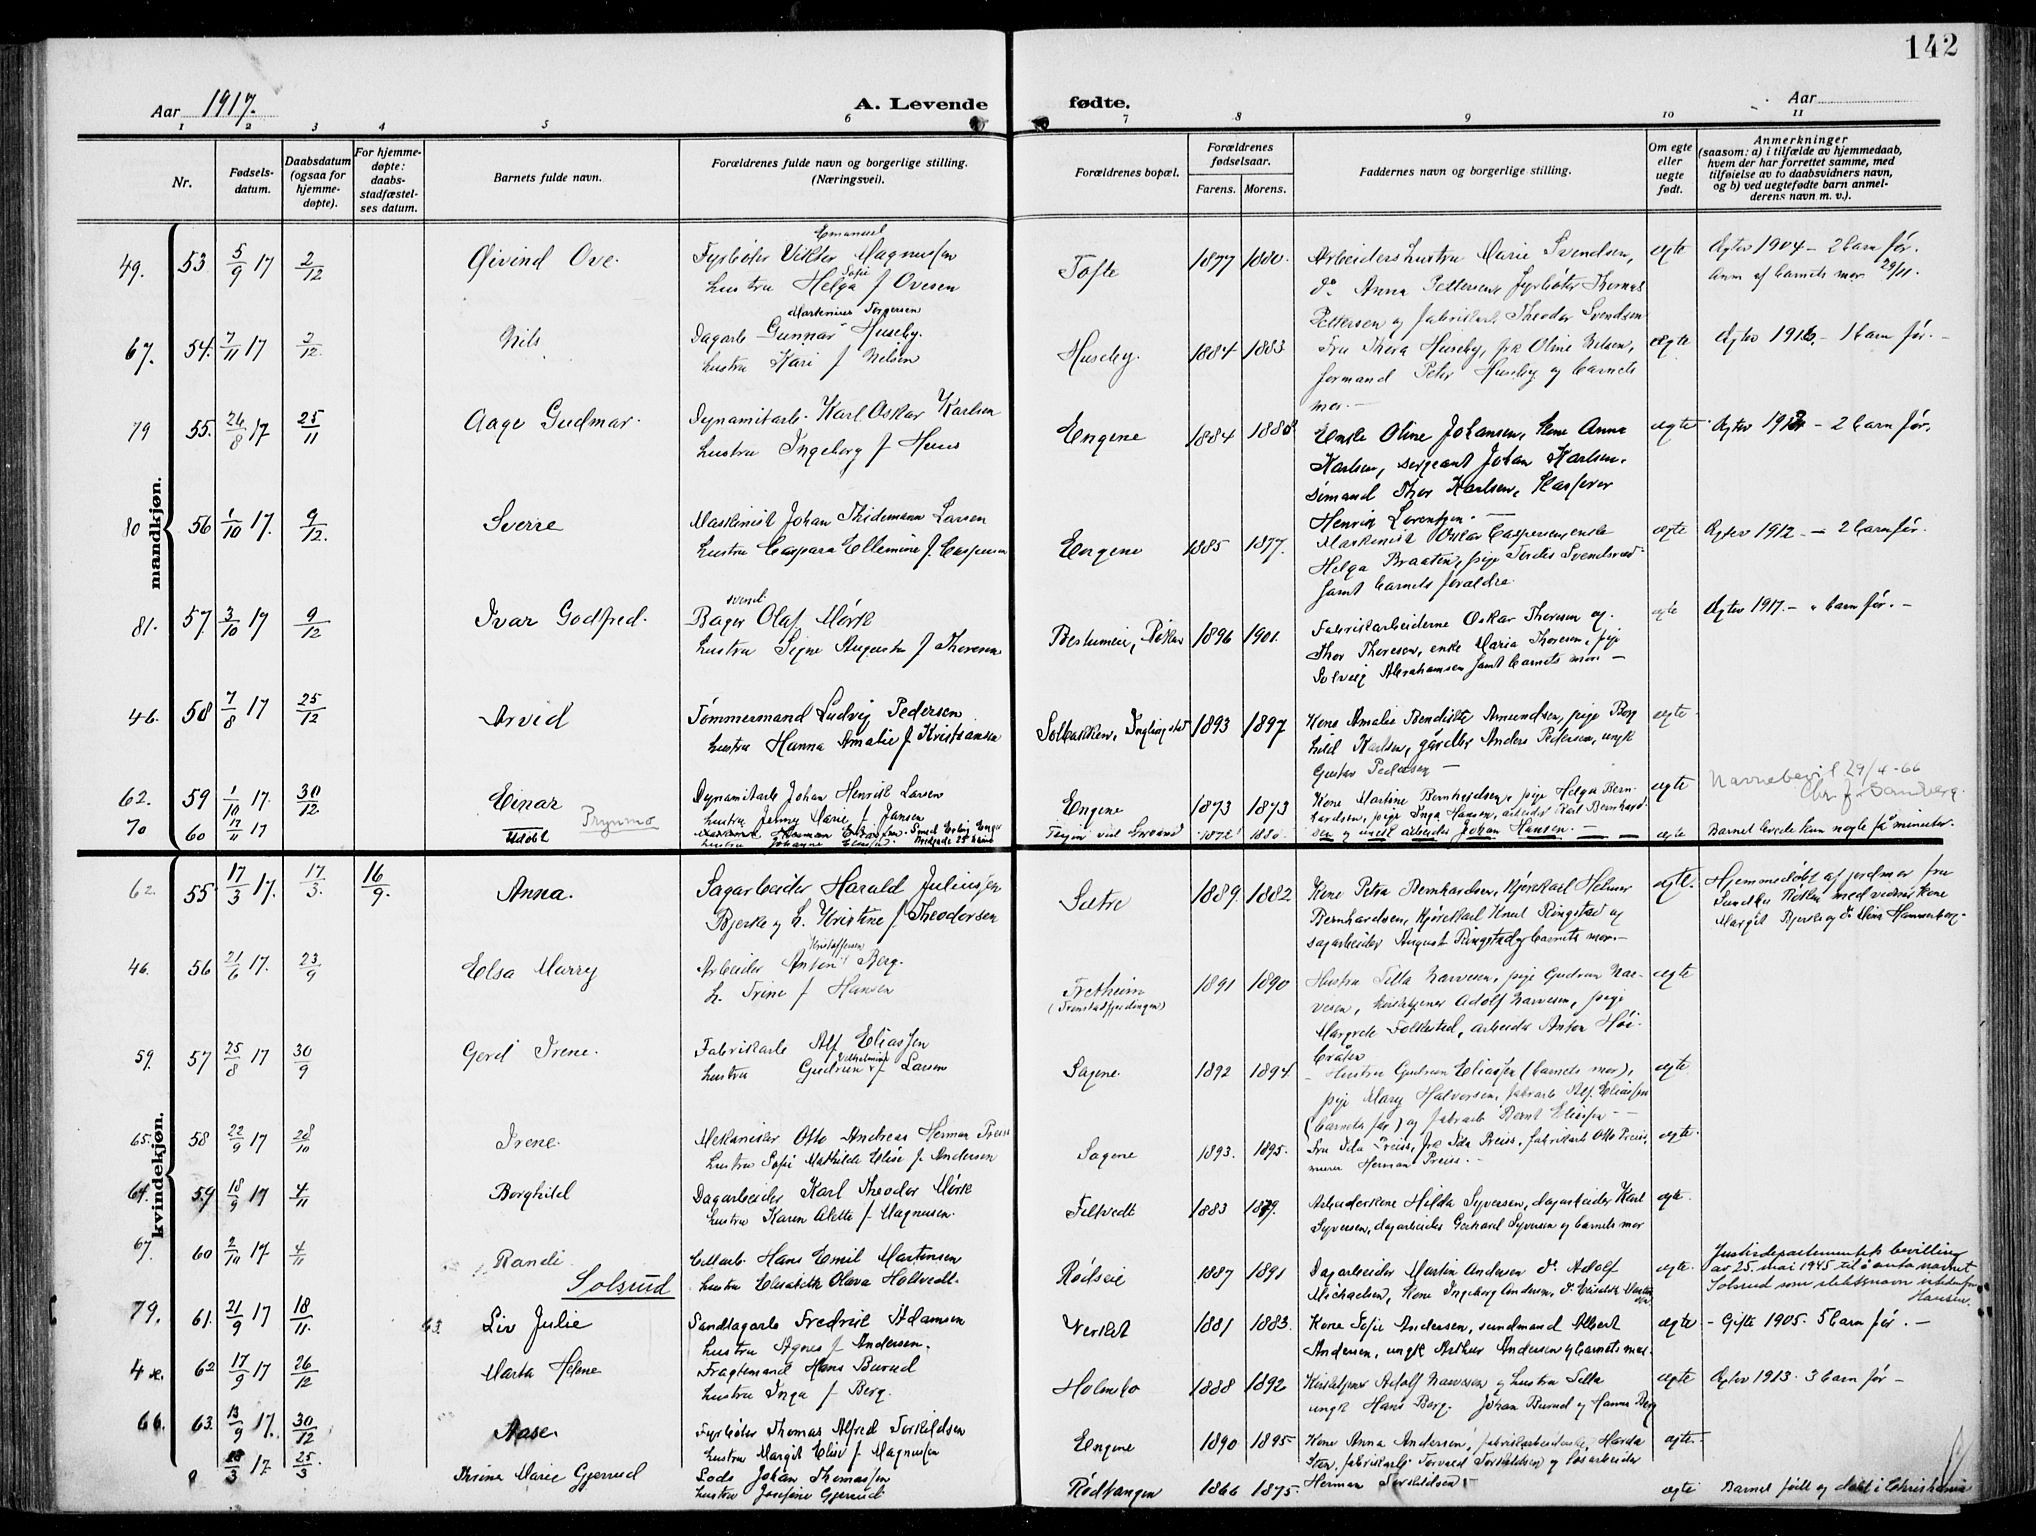 142
Aar 1917.
A. Levende fødte.
Aar
1 2 3 4 5 6 7 8 9 10 11
Nr.
Fødsels-
datum.
Daabsdatum
(ogsaa for
hjemme-
døpte).
For hjemme-
døpte:
daabs-
stadfæstel-
ses datum.
Barnets fulde navn.
Forældrenes fulde navn og borgerlige stilling.
(Næringsvei).
Forældrenes bopæl.
Forældrenes
fødselsaar.
Farens. Morens.
Faddernes navn og borgerlige stilling.
Om egte
eller
uegte
født.
Anmerkninger
(saasom: a) i tilfælde av hjemmedaab,
hvem der har forrettet samme, med
tilføielse av to daabsvidners navn,
og b) ved uegtefødte barn anmel-
derens navn m. v.).
mandkjøn.
49. 53 5/9 17 2/12 Øivind Ove.
Emanuel
Fyrbøter Viktor Magnussen
Sofie
hustru Helga f Ovesen
Tofte 1877 1880.
Arbeidershustru Marie Svendsen,
do Anna Pettersen, fyrbøter Thomas
Pettersen og fabrikarb. Theodor Svendsen
egte
Ægtev 1904 - 2 barn før.
Anm af barnets mor 29/11.
67. 54. 7/11 17 2/12. Nils
Martinius Torgersen
Dagarb Gunnar Huseby.
hustru Kari f Nelson
Huseby. 1884 1883
Fru Thora Huseby, frk Oline Nelsen,
formand Peter Huseby og barnets
mor. -
egte
Ægtev 1916. - 1 barn før. -
79 55. 26/8 17 25/11 Aage Gudmar.
Dynamitarb. Karl Oskar Karlsen
hustru Ingeborg f Heus
Engene 1884 1888
Enke Oline Johansen, kone Anna
Karlsen, sergeant Johan Karlsen,
sømand Thor Karlsen, kasserer
Henrik Lorentzen. -
egte
Ægtev 1912 - 2 barn før.
80 56 1/10 17. 9/12. Sverre
Maskinist Johan Thidemann Larsen
hustru Caspara Ellemine f. Caspersen
Engene 1885 1877.
Maskinist Oskar Caspersen, enke
Helga Braaten, pige Tordis Svendsrød
samt barnets forældre.
egte
Ægtev 1912. - 2 barn før.
81. 57. 3/10 17 9/12 Ivar Godtfred.
svend.
Bager Olaf Mørk
hustru Signe Augusta f Thoresen
1896 1901.
Fabrikarbeiderne Oskar Thoresen og
Thor Thoresen, enke Maria Thoresen, pige
Solveig Abrahamsen samt barnets mor -
egte
Ægtev 1917. - barn før. -
46. 58 7/8 17 25/12 Arvid
Tømmermand Ludvig Pedersen
hustru Hanna Amalie f Kristiansen
Solbakken, 1893 1897
Kone Amalie Bendikte Amundsen, pige Borg
hild Karlsen, gårdbr Anders Pedersen, ungk
Gustav Pedersen -
egte
62. 59 1/10 17. 30/12 Einar
Prynmo
Dynamitarb Johan Henrik Larsen
hustru Jenny Marie f Jansen
Engene 1873 1873
Kone Martine Bernhardsen, pige Helga Bern-
hardsen, pige Inga Hansen, arbeider Karl Bernhard-
sen og ungk arbeider Johan Hansen. -
egte
Navnebevil 29/4-66
70 60 17/11 17 Udøbt
1872 1880.
egte
Barnet levde kun nogle få minuter.
kvindekjøn.
62. 55 17/3 17. 17/3. 16/9. Anna.
Sagarbeider Harald Juliussen
Bjerke og h. Kristine f Theodorsen
Sætre 1889. 1882
Kone Petra Bernhardsen, kjørekarl Helmer
Bernhardsen, kjørekarl Knut Ringstad og
sagarbeider August Ringstad og barnets mor. -
egte.
Hjemmedøbt af jordmor fru
Sundby Røken med vidner kone
Margit Bjerke og do Mina Hammerberg.
46. 56 21/6 17. 23/9 Elsa Marry
Kristoffersen
Arbeider Anton Berg.
h. Trine f Hansen
Fretheim
1891 1890
Hustru Tilla Narvesen, pige Gudrun Nar-
vesen, kirketjener Adolf Narvesen, pige
Margrete Folkestad, arbeider Anton Høi-
bråten
egte
59. 57 25/8 17 30/9 Gerd Irene.
Fabrikarb Alf Eliassen
Vilhelmine
hustru Gudrun f Larsen
Sagene. 1892 1894.
- Hustru Gudrun Eliassen (barnets mor),
pige Mary Halvorsen, fabrarb Alf. Eliassen
(barnets far) og fabrarb Bernt Eliassen -
egte
65. 58 22/9 17 28/10 Irene.
Mekaniker Otto Andreas Herman Preiss
hustru Sofie Mathilde Elise f. Andersen
Sagene 1893. 1895.
Fru Ida Preiss, frk Ida Preiss, fabrikarb Otto Preiss,
murer Herman Preiss. -
egte.
64. 59 18/9 17 4/11 Borghild
Dagarbeider Karl Theodor Mørk
hustru Karen Alette f. Magnusen.
Filtvedt 1883 1879.
Arbeiderkone Hilda Syversen, dagarbeider Karl
Syversen, dagarbeider Gerhard Syversen og barnets mor
egte.
67. 60 2/10 17 4/11 Randi
Solsrud
Cellarb. Hans Emil Martinsen
hustru Elisabeth Olava Holtvedt.
Rødseie 1887 1891
Dagarbeider Martin Andersen do. Adolf
Michaelsen, kone Ingeborg Andersen, do Elisabeth
egte.
Justisdepartementets bevilling
av 25. mai 1945 til å anta navnet
Solsrud som slektsnavn istedenfor
Hansen.
79. 61. 21/9 17 18/11. 63. Liv Julie
Sandtagarb Fredrik Adamsen
hustru Agnes f Andersen.
Verket 1881 1883.
Kone Sofie Andersen, sundmand Albert
Andersen, ungk Arthur Andersen og barnets mor.
egte
- Gifte 1905. 5 barn før. -
62 17/9 17 26/12 Marta Helene
Fragtemand Hans Burud
hustru Inga f Berg.
Holmsbo 1888 1892
Kirketjener Adolf Narvesen og hustru Tilla
ungk Hans Berg. Johan Burud og Hanna Berg
egte
Ægtev 1913. 3 barn før -
66. 63. 13/9 17. 30/12 Aase.
Fyrbøter Thomas Alfred Torkildsen
hustru Margit Elise f Magnussen
Engene 1890 1895
Kone Anna Andersen, fabrikarbeiderske Harda
Sten, fabrikarb Torvald Torkildsen og løsarbeider
Herman Torkildsen -
egte.
23/3 17. 25/3. Thrina Marie Gjerrud
Lods Johan Thomassen
hustru Josefine Gjerrud
Rødtangen 1866 1875.
egte
Barnet født og døbt i Christiania